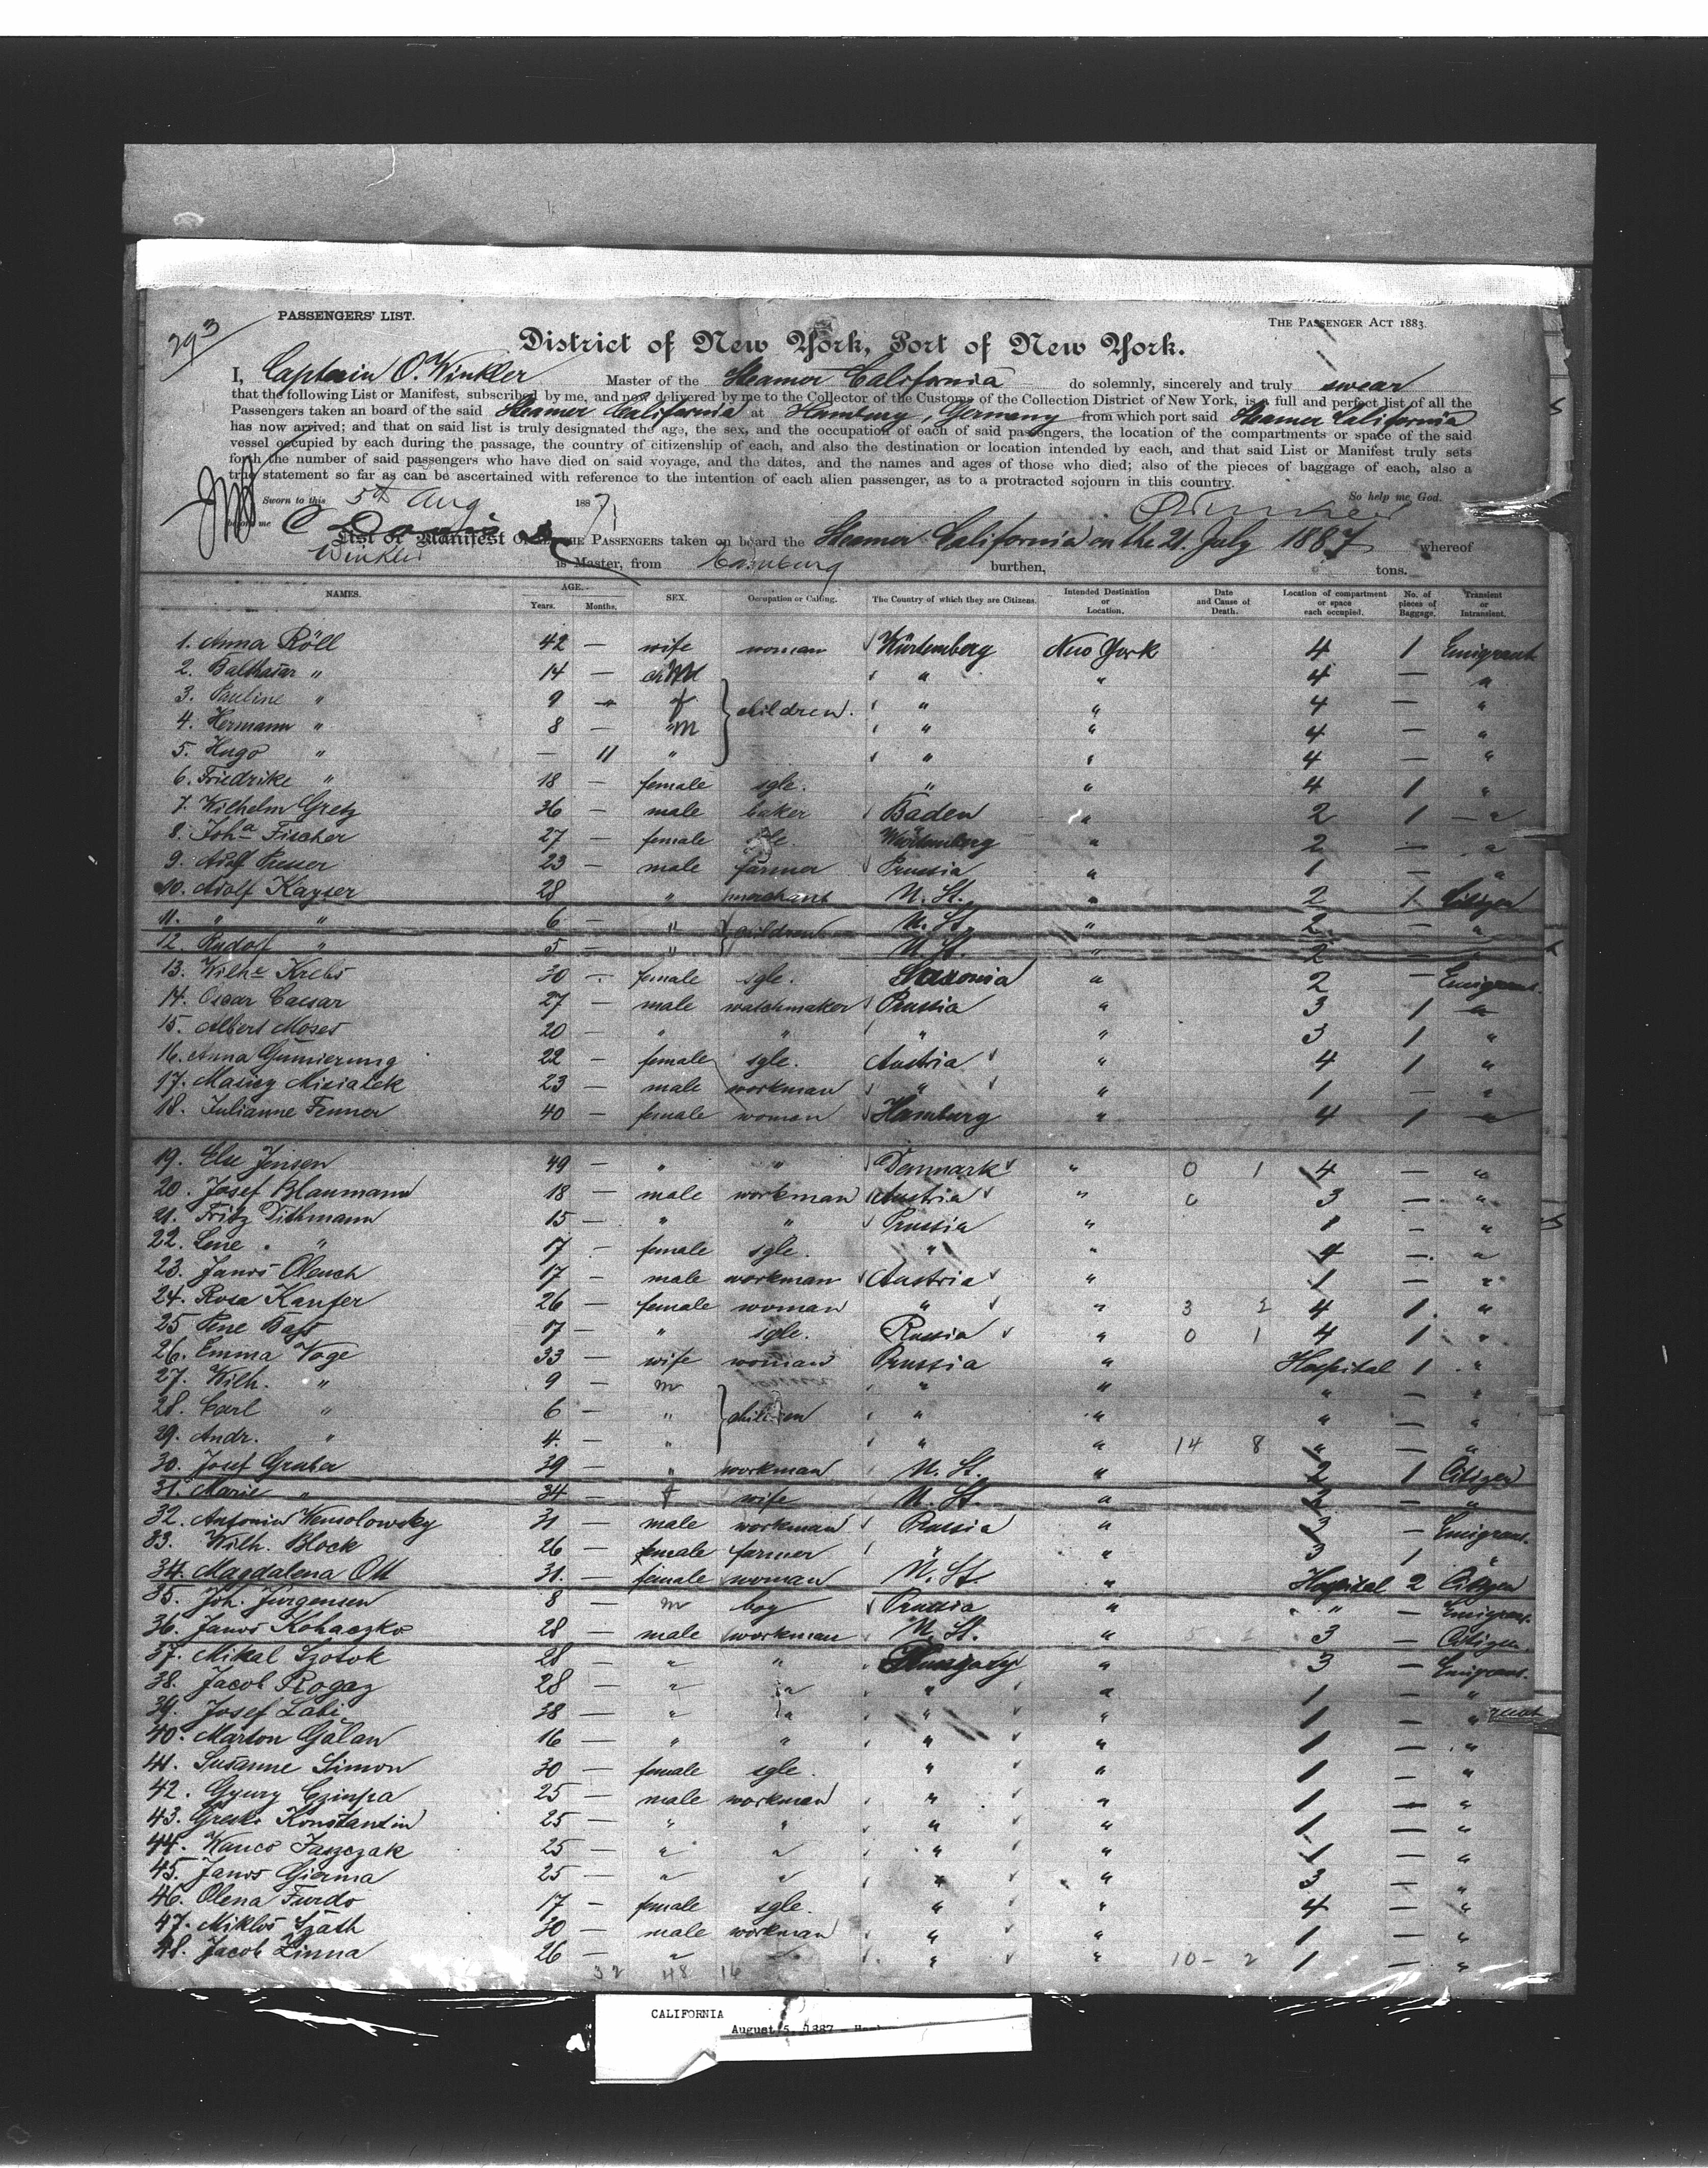 293
PASSENGERS' LIST.
THE PASSENGER ACT 1883.
District of New York, Port of New York.
I, Captain O. Winkler Master of the Steamer California do solemnly, sincerely and truly swear
that the following List or Manifest, subscribed by me, and now delivered by me to the Collector of the Customs of the Collection District of New York, is a full and perfect list of all the
Passengers taken an board of the said Steamer California at Hamburg, Germany from which port said Steamer California
has now arrived; and that on said list is truly designated the age, the sex, and the occupation of each of said passengers, the location of the compartments or space of the said
vessel occupied by each during the passage, the country of citizenship of each, and also the destination or location intended by each, and that said List or Manifest truly sets
forth the number of said passengers who have died on said voyage, and the dates, and the names and ages of those who died; also of the pieces of baggage of each, also a
true statement so far as can be ascertained with reference to the intention of each alien passenger, as to a protracted sojourn in this country.
Sworn to this 5th Aug 1887 So help me God.
before me
List or Manifest OF THE PASSENGERS taken on board the Steamer California on the 21. July 1887 whereof
Winkler is Master, from Hamburg burthen, tons.
NAMES. AGE. Years. Months. SEX. Occupation or Calling. The Country of which they are Citizens. Intended Destination or Location. Date and Cause of Death. Location of compartment or space each occupied. No. of pieces of Baggage. Transient or Intransient.
1. Anna Röll 42 — wife woman Würtemberg New York 4 1 Emigrant
2. Balthasar " 14 — " " 4 — "
3. Pauline " 9 — f children. " " 4 — "
4. Hermann " 8 — m " " 4 — "
5. Hugo " — 11 " " " 4 — "
6. Friedrike " 18 — female sgle. " " 4 1 "
7. Wilhelm Gretz 36 — male baker Baden " 2 1 — "
8. Joha Fischer 27 — female sgle Würtemberg " 2 — "
9. Adolf 23 — male farmer Prussia " 1 — "
10. Adolf Kayser 28 " merchant U. St. " 2 1 Citizen
11. " " 6 — " children U. St. " 2 — "
12. Rudolf " 5 — " U. St. " 2 — "
13. Wilhe Krebs 30 — female sgle. Saxonia " 2 — Emigrant.
14. Oscar Caesar 27 — male watchmaker Prussia " 3 1 "
15. Albert Moses 20 — " " " " 3 1 "
16. Anna 22 — female sgle. Austria " 4 1 "
17. Misiatek 23 — male workman " " 1 — "
18. Julianne Fenner 40 — female woman Hamburg " 4 1 "
19. Else Jensen 49 — " " Denmark " 0 1 4 — "
20. Josef Blaumann 18 — male workman Austria " 0 3 — "
21. Fritz Dithmann 15 — " " Prussia " 1 — "
22. Lene " 17 — female sgle. " " 4 — "
23. Janos Olench 17 — male workman Austria " 1 — "
24. Rosa Kanfer 26 — female woman " " 3 2 4 1 "
25 Bass 17 — " sgle. Russia " 0 1 4 1 "
26. Emma Voge 33 — wife woman Prussia " Hospital 1 "
27. Wilh. " 9 — m " " " — "
28. Carl " 6 — " children " " " — "
29. Andr. " 4. — " " " 14 8 " — "
30. Josef Gruber 39 — " workman U. St. " 2 1 Citizen
31. Marie " 34 — f wife U. St. " 2 — "
32. Antonin Wensolowsky 31 — male workman Russia " 3 — Emigrant.
33. Wilh. Block 26 — female farmer " " 3 1 "
34. Magdalena Ott 31. — female woman U. St. " Hospital 2 Citizen
35. Joh. Jürgensen 8 — m boy Prussia " " — Emigrant.
36. Janos Kohaczko 28 — male workman U. St. " 3 — Citizen.
37. Mikal Szotok 28 — " " Hungary " 3 — Emigrant.
38. Jacob Rogaz 28 — " " " " 1 — "
39. Josef Labi 38 — " " " " 1 — "
40. Marton Gálan 16 — " " " " 1 — "
41. Susanne Simon 30 — female sgle. " " 1 — "
42. Gyury Czimpa 25 — male workman " " 1 — "
43. Konstantin 25 — " " " " 1 — "
44. Jaszczak 25 — " " " " 1 — "
45. Janos Gierma 25 — " " " " 3 — "
46. Olena Furdo 17 — female sgle. " " 4 — "
47. Miklos Száth 30 — male workman " " 1 — "
48. Jacob Linna 26 — " " " 10 - 2 1 — "
32 48 16
CALIFORNIA
August 5, 1887